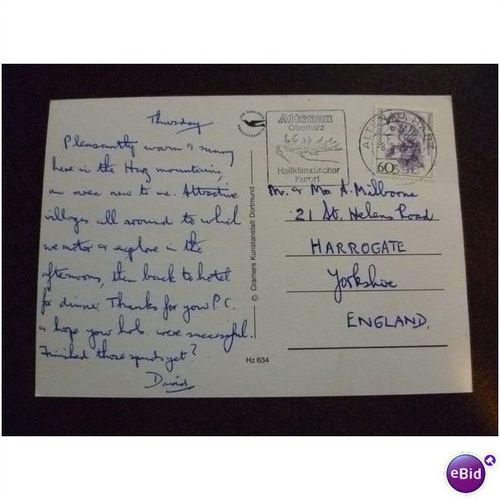 Thursday
Pleasantly warm & sunny
here in the Harz mountains,
an area new to me. Attractive
villages all around to which
we motor & explore in the
afternoons, then back to hotel
for dinner. Thanks for your P.C.
& hope your hols. were successful.
Finished those spuds yet?
David
© Cramers Kunstanstalt Dortmund
Hz 634
Altenau
Oberharz
Heilklimatischer
Kurort
ALTENAU, HARZ
60
Mr. & Mrs A. Milborne
21 St. Helens Road
HARROGATE
Yorkshire
ENGLAND.
eBid